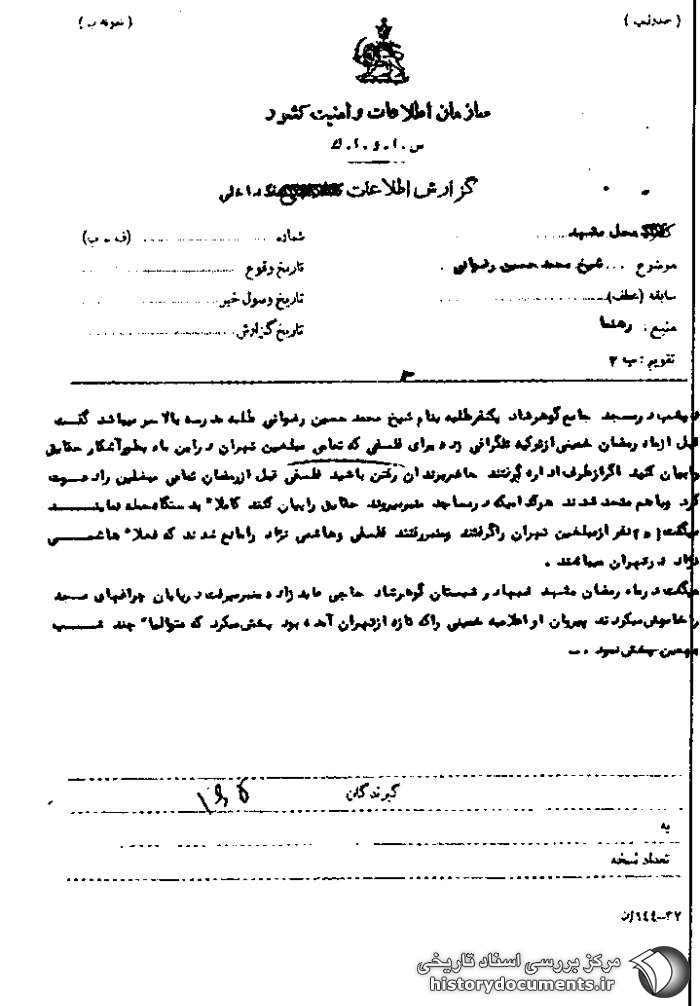 (خیلی محرمانه) (نمونه ب)
سازمان اطلاعات و امنیت کشور
س.ا.و.ا.ک
گزارش اطلاعات داخلی
محل مشهد
شماره (ف ـ ب)
موضوع شیخ محمد حسین رضوانی
تاریخ وقوع
سابقه (عطف)
تاریخ وصول خبر
منبع: رهنما
تاریخ گزارش
تقویم: ب ۲
۳
دیشب در مسجد جامع گوهرشاد یکنفر طلبه بنام شیخ محمد حسین رضوانی طلبه مدرسه بالاسر میباشد گفت
قبل از ماه رمضان خمینی از ترکیه تلگرافی زده برای فلسفی که تمامی مبلغین تهران در این ماه بطور آشکار حقایق
را بیان کنید اگر از طرف اداره گرفتند حاضر بزندان رفتن باشید فلسفی قبل از رمضان تمامی مبلغین را دعوت
کرد و باهم متحد شدند هرکدامیکه در مساجد منبر میروند حقایق را بیان کنند کاملا" بدستگاه حمله نمایند
میگفت نفر از مبلغین تهران را گرفتند ومنبر رفتند فلسفی و هاشمی نژاد را مانع شدند که فعلا" هاشمی
نژاد در تهران میباشد .
میگفت در ماه رمضان مشهد شبها در شبستان گوهرشاد حاجی عابدزاده منبر میرفت در پایان چراغهای مسجد
را خاموش میکردند پیروان او اعلامیه خمینی را که تازه از تهران آمده بود پخش میکرد که متوالیا" چند شب
بهمین پخش نمود . ـ
گیرندگان
به
تعداد نسخه
۳۲-۶۴۴/ن
مرکز بررسی اسناد تاریخی
historydocuments.ir